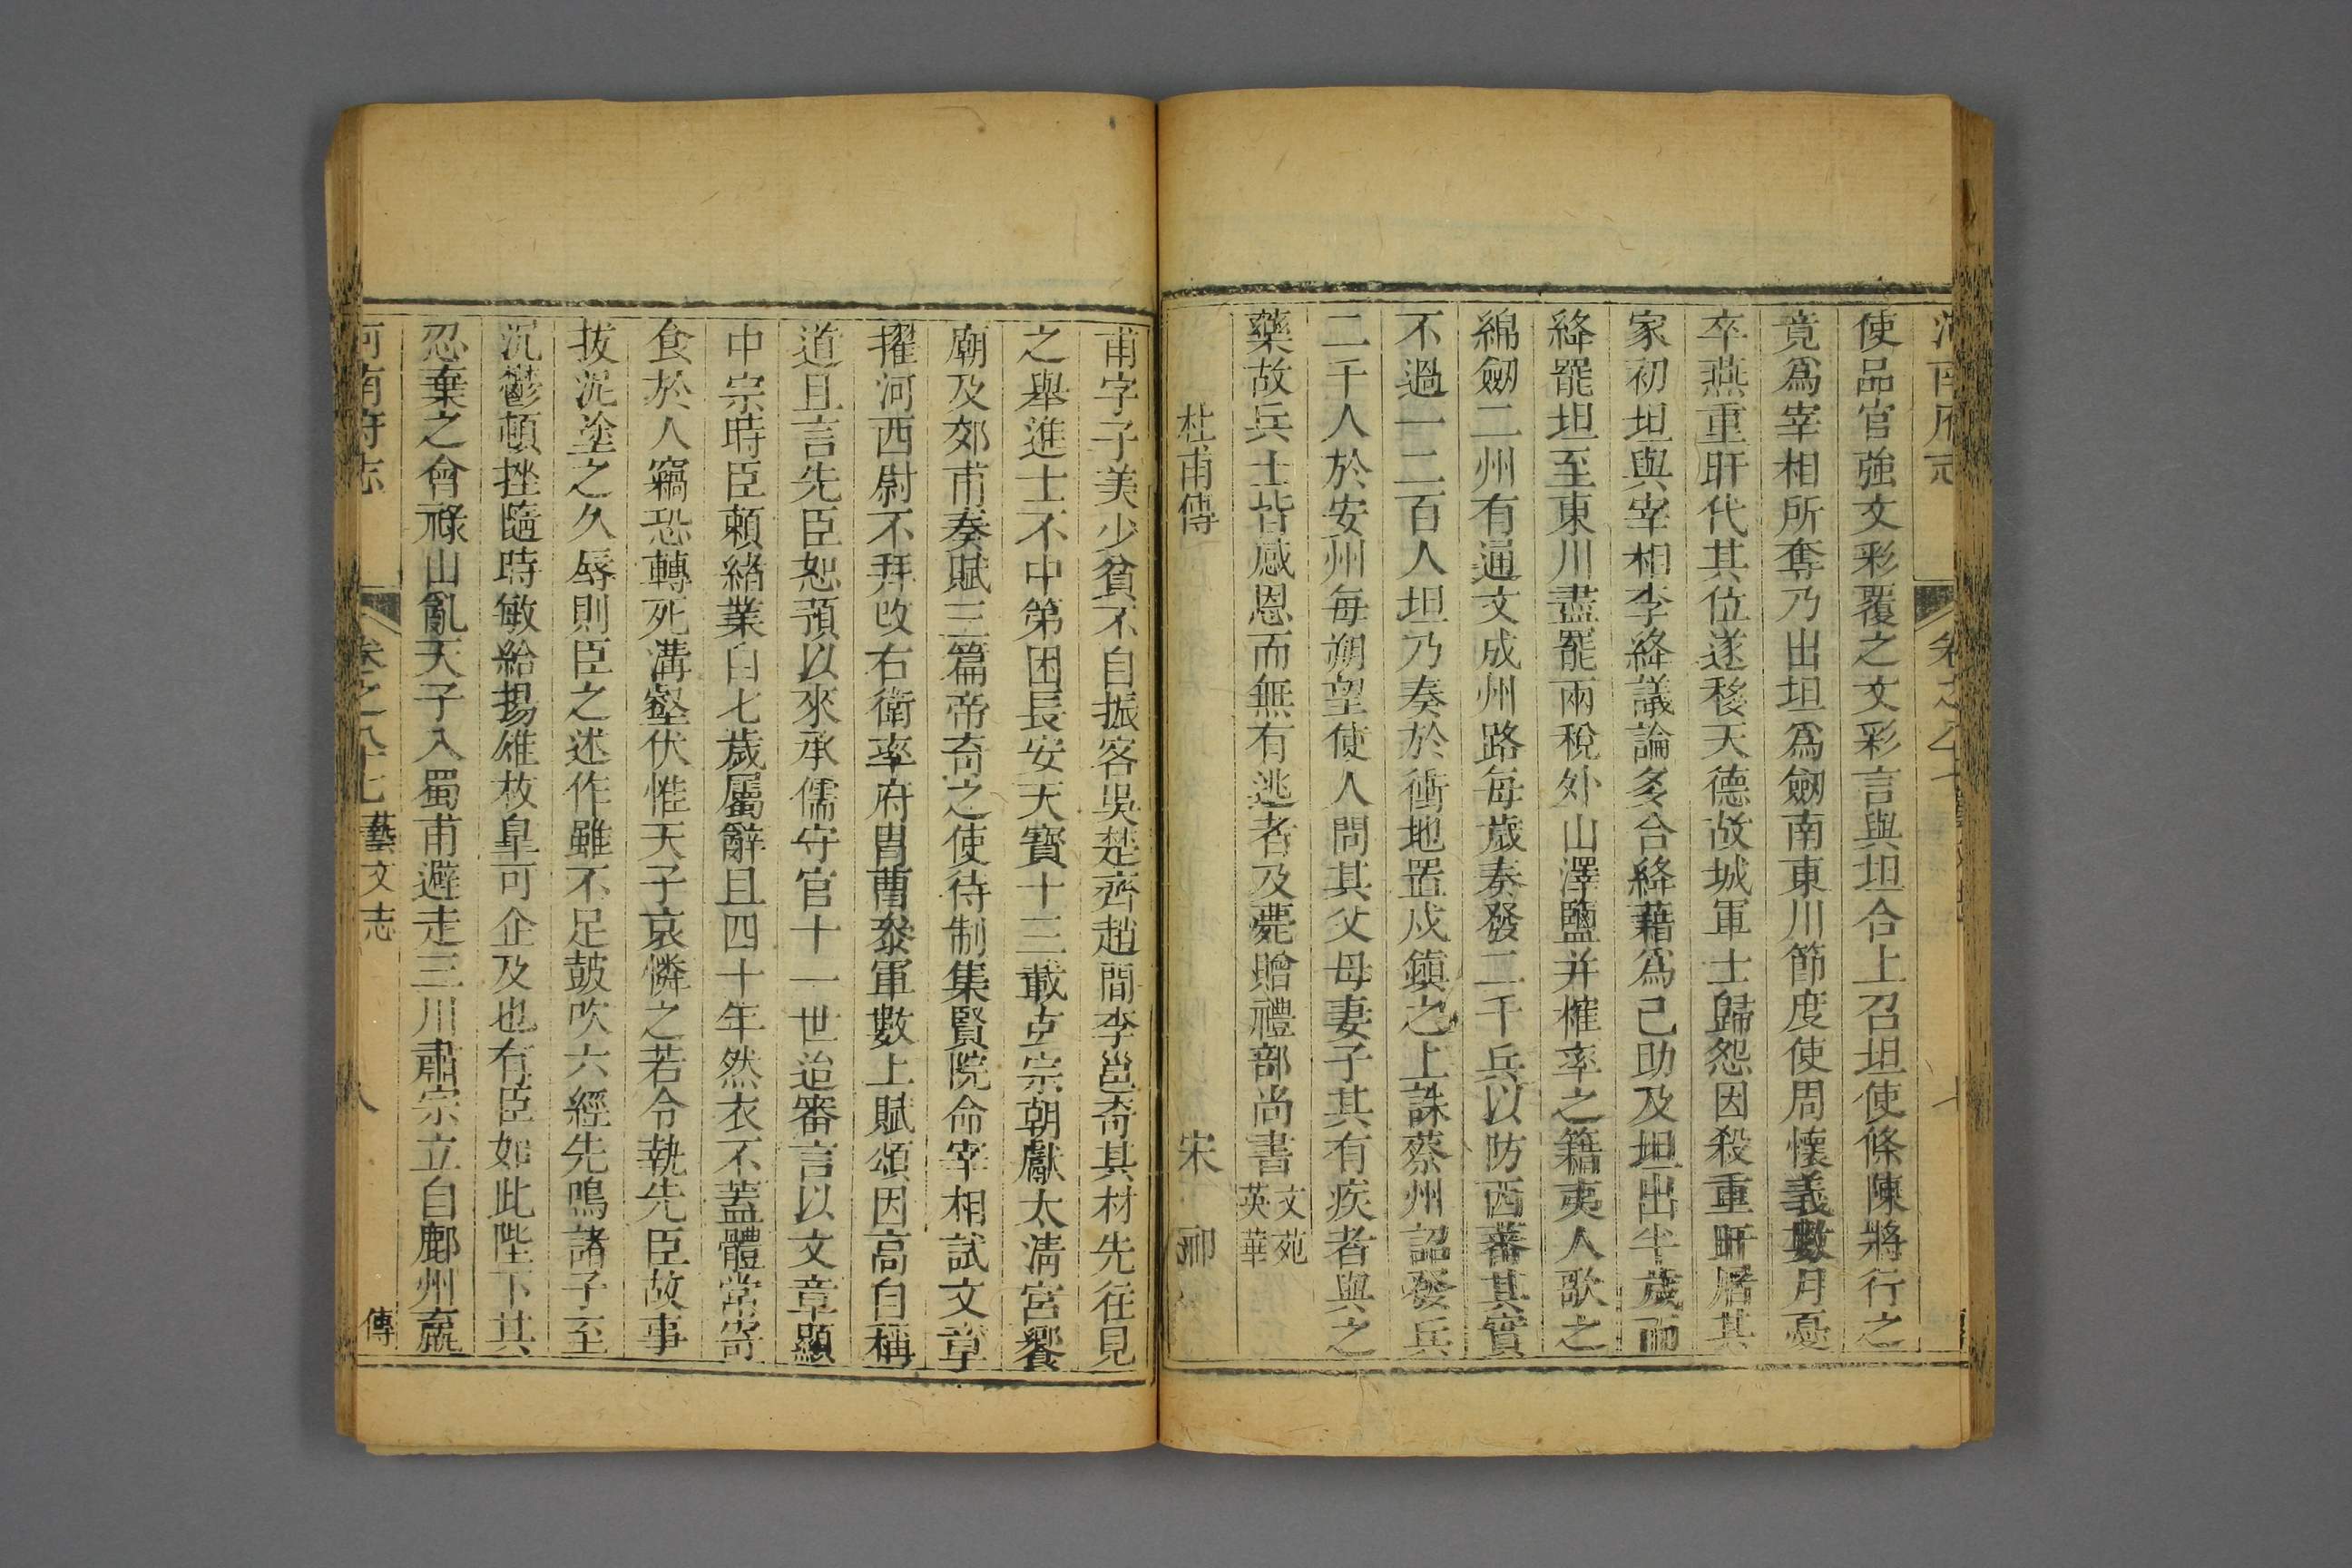 使品官強文彩覆之文彩言與坦合上召坦使條陳將行之
竟爲宰相所奪乃出坦爲劒南東川節度使周懷義數月憂
卒燕重旰代其位遂移天德故城軍士歸怨因殺重旰屠其
家初坦與宰相李絳議論多合絳藉爲己助及坦出半歲而
絳罷坦至東川盡罷兩稅外山澤鹽井榷率之籍夷人歌之
綿劒二州有通文成州路每歲奏發二千兵以防西蕃其實
不過一二百人坦乃奏於衝地置戍鎮之上誅蔡州詔發兵
二千人於安州每朔望使人問其父母妻子其有疾者與之
藥故兵士皆感恩而無有逃者及薨贈禮部尚書文苑英華
杜甫傳 宋 祁
甫字子美少貧不自振客吳楚齊趙間李邕奇其材先往見
之舉進士不中第困長安天寶十三載玄宗朝獻太清宮饗
廟及郊甫奏賦三篇帝奇之使待制集賢院命宰相試文章
擢河西尉不拜改右衛率府胄曹叅軍數上賦頌因高自稱
道且言先臣恕預以來承儒守官十一世迨審言以文章顯
中宗時臣頼緒業自七歲屬辭且四十年然衣不蓋體常寄
食於人竊恐轉死溝壑伏惟天子哀憐之若令執先臣故事
拔泥塗之久辱則臣之述作雖不足鼓吹六經先鳴諸子至
沉鬱頓挫隨時敏給揚雄枚皐可企及也有臣如此陛下其
忍棄之會祿山亂天子入蜀甫避走三川肅宗立自鄜州羸
河南府志 卷之八十七 藝文志 傳 八